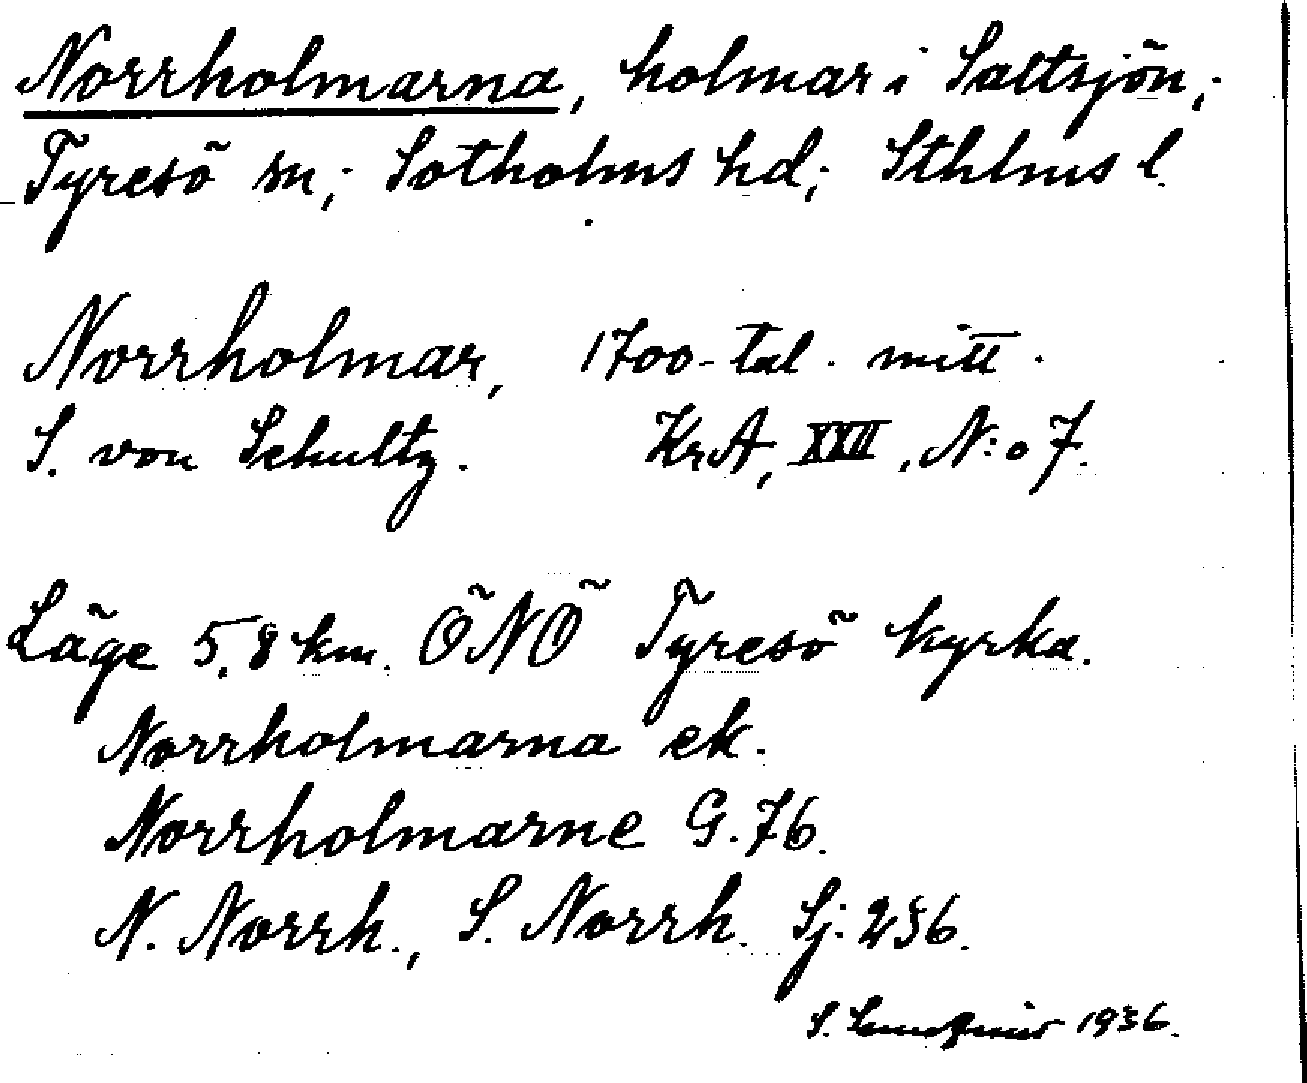 Norrholmarna, holmar i Saltsjön,
Tyresö sn, Sotholms hd, Sthlms l.
Norrholmar, 1700-tal. mitt.
S. von Schultz. KrA, XXII, N:o 7.
Läge 5,8 km. ÖNÖ Tyresö kyrka.
Norrholmarna ek.
Norrholmarne G. 76.
N. Norrh., S. Norrh. Sj: 236.
S. 1936.